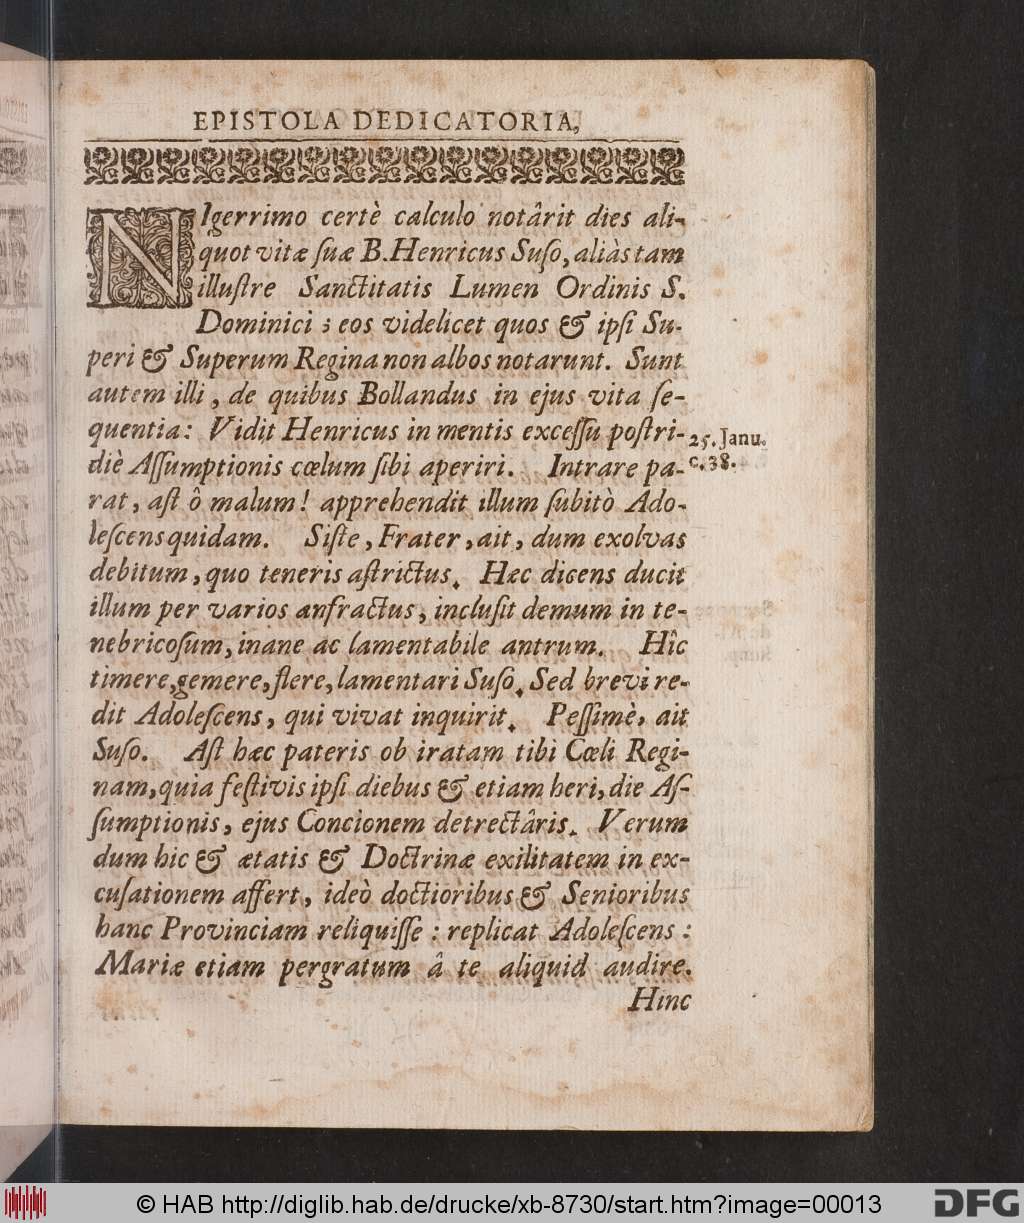 EPISTOLA DEDICATORIA,
NIgerrimo certè calculo notârit dies ali-
quot vitæ ſuæ B. Henricus Suſo, aliàs tam
illuſtre Sanctitatis Lumen Ordinis S.
Dominici ; eos videlicet quos & ipſi Su-
peri & Superum Regina non albos notarunt. Sunt
autem illi, de quibus Bollandus in ejus vita ſe-
quentia: Vidit Henricus in mentis exceſſu poſtri-
25. Janu.
diè Aſſumptionis cœlum ſibi aperiri. Intrare pa-
c. 38.
rat, aſt ô malum! apprehendit illum ſubitò Ado-
leſcens quidam. Siſte, Frater, ait, dum exolvas
debitum, quo teneris aſtrictus. Hæc dicens ducit
illum per varios anfractus, incluſit demum in te-
nebricoſum, inane ac lamentabile antrum. Hîc
timere, gemere, flere, lamentari Suſo. Sed brevi re-
dit Adoleſcens, qui vivat inquirit. Peſſimè, ait
Suſo. Aſt hæc pateris ob iratam tibi Cœli Regi-
nam, quia feſtivis ipſi diebus & etiam heri, die Aſ-
ſumptionis, ejus Concionem detrectâris. Verum
dum hic & ætatis & Doctrinæ exilitatem in ex-
cuſationem affert, ideò doctioribus & Senioribus
hanc Provinciam reliquiſſe : replicat Adoleſcens :
Mariæ etiam pergratum â te aliquid audire.
Hinc
© HAB http://diglib.hab.de/drucke/xb-8730/start.htm?image=00013
DFG